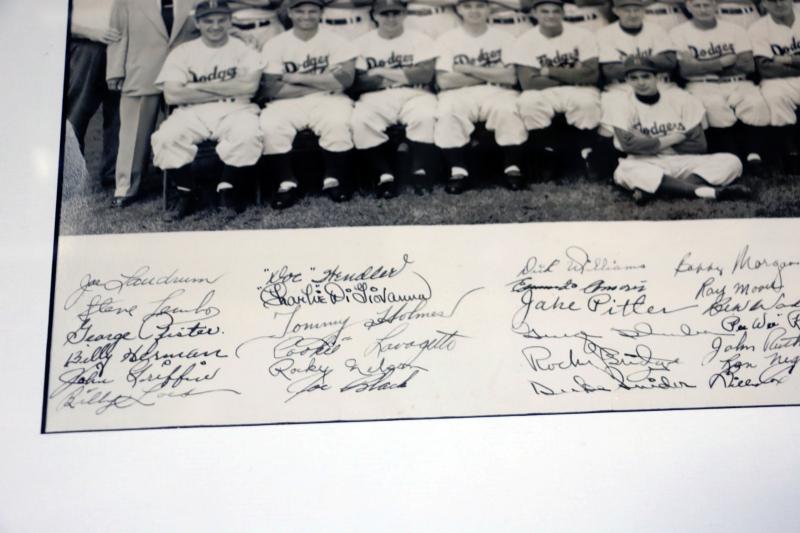 Dodgers Dodgers Dodgers Dodgers Dodgers Dodgers Dodgers
Dodgers
Joe Landrum
Steve Lembo
George Pfister.
Billy Herman
John Griffin
Billy Loes
"Doc" Wendler
Charlie DiGiovanna
Tommy Holmes
"Cookie" Lavagetto
Rocky Nelson
Joe Black
Dick Williams
Edmundo Amoros
Jake Pitler
George Shuba
Rocky Bridges
Duke Snider
Bobby Morgan
Ray Moore
Ben Wade
Pee Wee R
John
Billy Cox